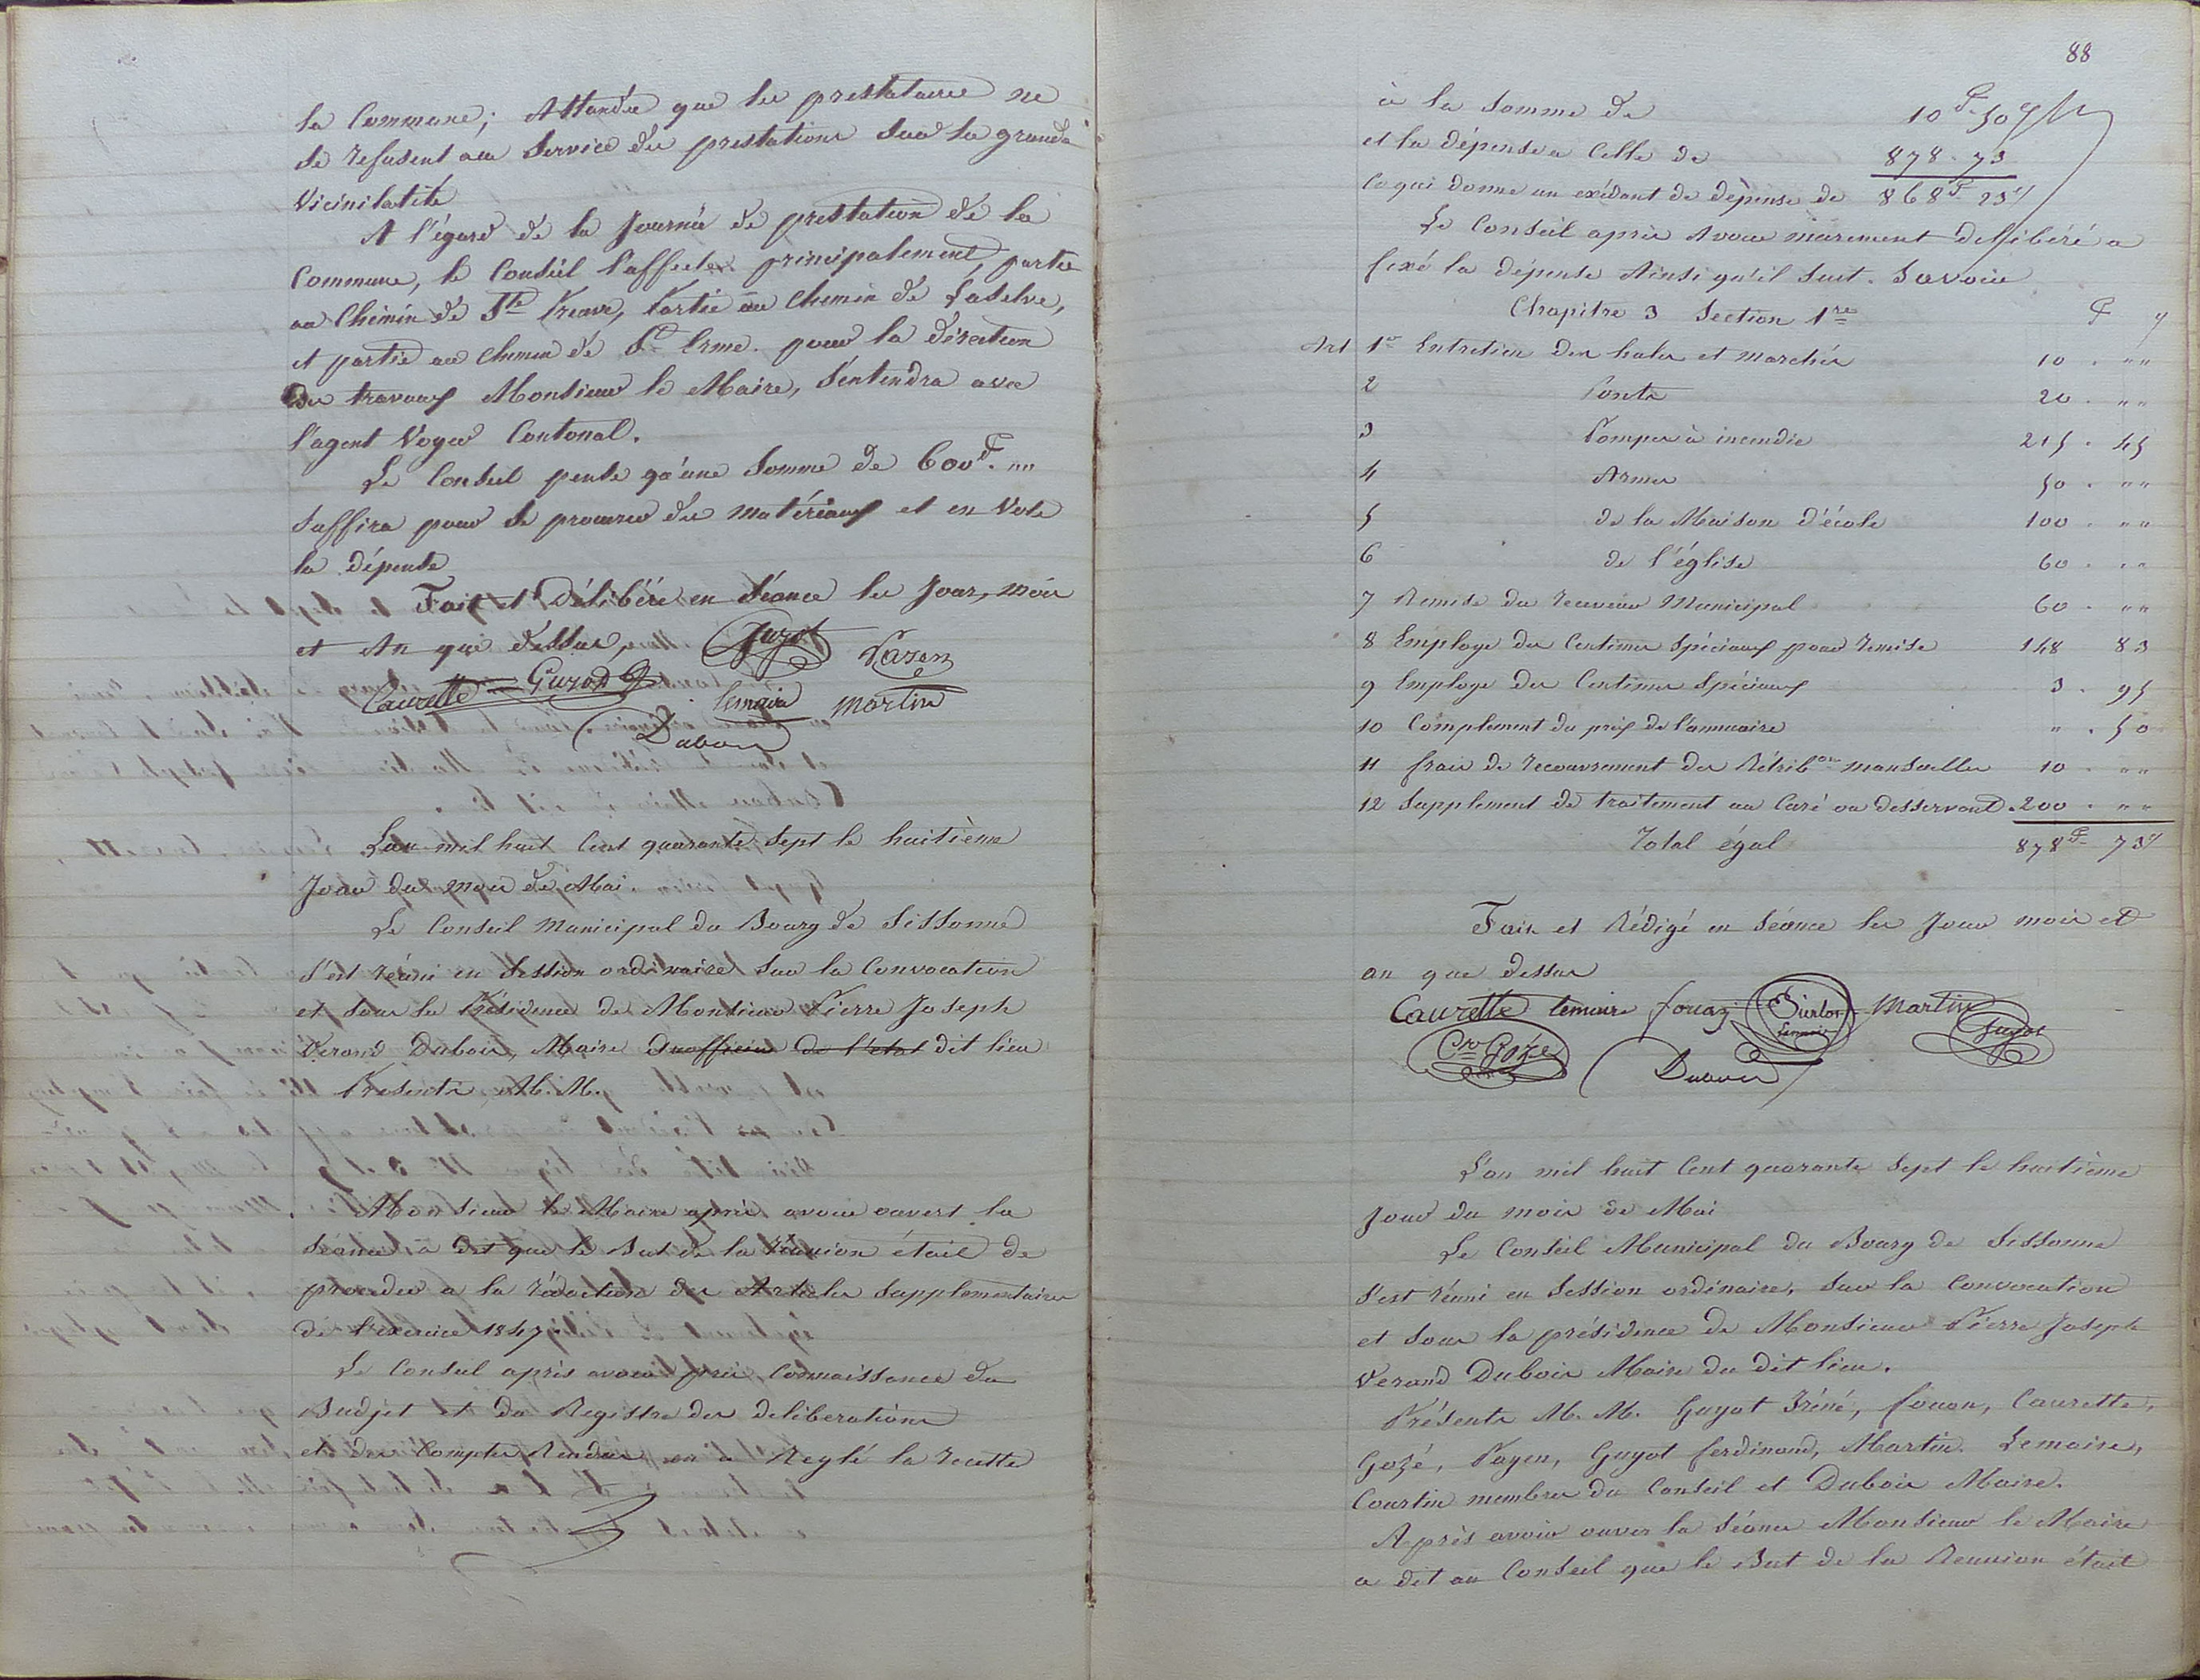 la Commune; Attendu que les prestataires ne
se refusent au Service des prestations sur la grande
Vicinilatité
A l'égard de la Journée de prestation de la
Commune, le Conseil l'affecte principalement partie
au Chemin de Ste Preuve, Partie au Chemin de Laselve,
et partie au chemin de St Erme. pour la direction
des travaux Monsieur le Maire, s'entendra avec
l'agent Voyer Cantonal.
Le Conseil pense qu'une Somme de 600f. ""
Suffira pour se procurer des matériaux et en Vote
la dépense
Fait et Délibéré en Séance les Jour, mois
et An que dessus, Guyot Payen
Caurette Guyot Lemaire Martin
Dubois
L'an mil huit Cent quarante Sept le huitième
Jour du mois de Mai
Le Conseil Municipal du Bourg de Sissonne
S'est réuni en Session ordinaire Sur la Convocation
et Sous la Présidence de Monsieur Pierre Joseph
Verand Dubois, Maire du officier de l'état dit lieu
Présents M. M.
Monsieur le Maire après avoir ouvert la
Séance, a dit que le But de la réunion était de
procéder a la rédaction des Articles Supplementaires
de l'exercice 1847.
Le Conseil après avoir pris Connaissance du
Budjet et du Registre des deliberations
et des Comptes Rendus en a Reglé la recette
88
à la Somme de 10f 50c
et la dépense a Celle de 878. 73
Ce qui donne un exédant de dépense de 868f 23c
Le Conseil après Avoir mûrement délibéré a
fixé la dépense Ainsi qu'il Suit. Savoir
Chapitre 3 Section 1re f c
Art 1er Entretien des hales et marchés 10 . ""
2 Ponts 20 . ""
3 Pompes à incendie 215 . 45
4 Armes 50 . ""
5 de la Maison d'école 100 . ""
6 de l'église 60 . ""
7 Remise du receveur Municipal 60 . ""
8 Employe des Centimes Spéciaux pour remise 148 83
9 Employe des Centimes Spéciaux 3 . 95
10 Complement du prix de l'annuaire " . 50
11 frais de recouvrement des Rétribons mensuelles 10 . ""
12 Supplement de traitement au Curé ou desservant. 200 . ""
Total égal 878f 73c
Fait et Rédigé en Séance les Jour mois et
an que dessus
Caurette Lemaire fouan Martin
Goze Dubois Guyot
L'an mil huit Cent quarante Sept le huitième
Jour du mois de Mai
Le Conseil Municipal du Bourg de Sissonne
S'est réuni en Session ordinaire, Sur la Convocation
et Sous la présidence de Monsieur Pierre Joseph
Verand Dubois Maire du dit lieu.
Présents M. M. Guyot Iréné, fouan, Caurette,
Gozé, Payen, Guyot ferdinand, Martin. Lemaire,
Courtin membres du Conseil et Dubois Maire.
Après avoir ouver la Séance Monsieur le Maire
a dit au Conseil que le But de la Reunion était